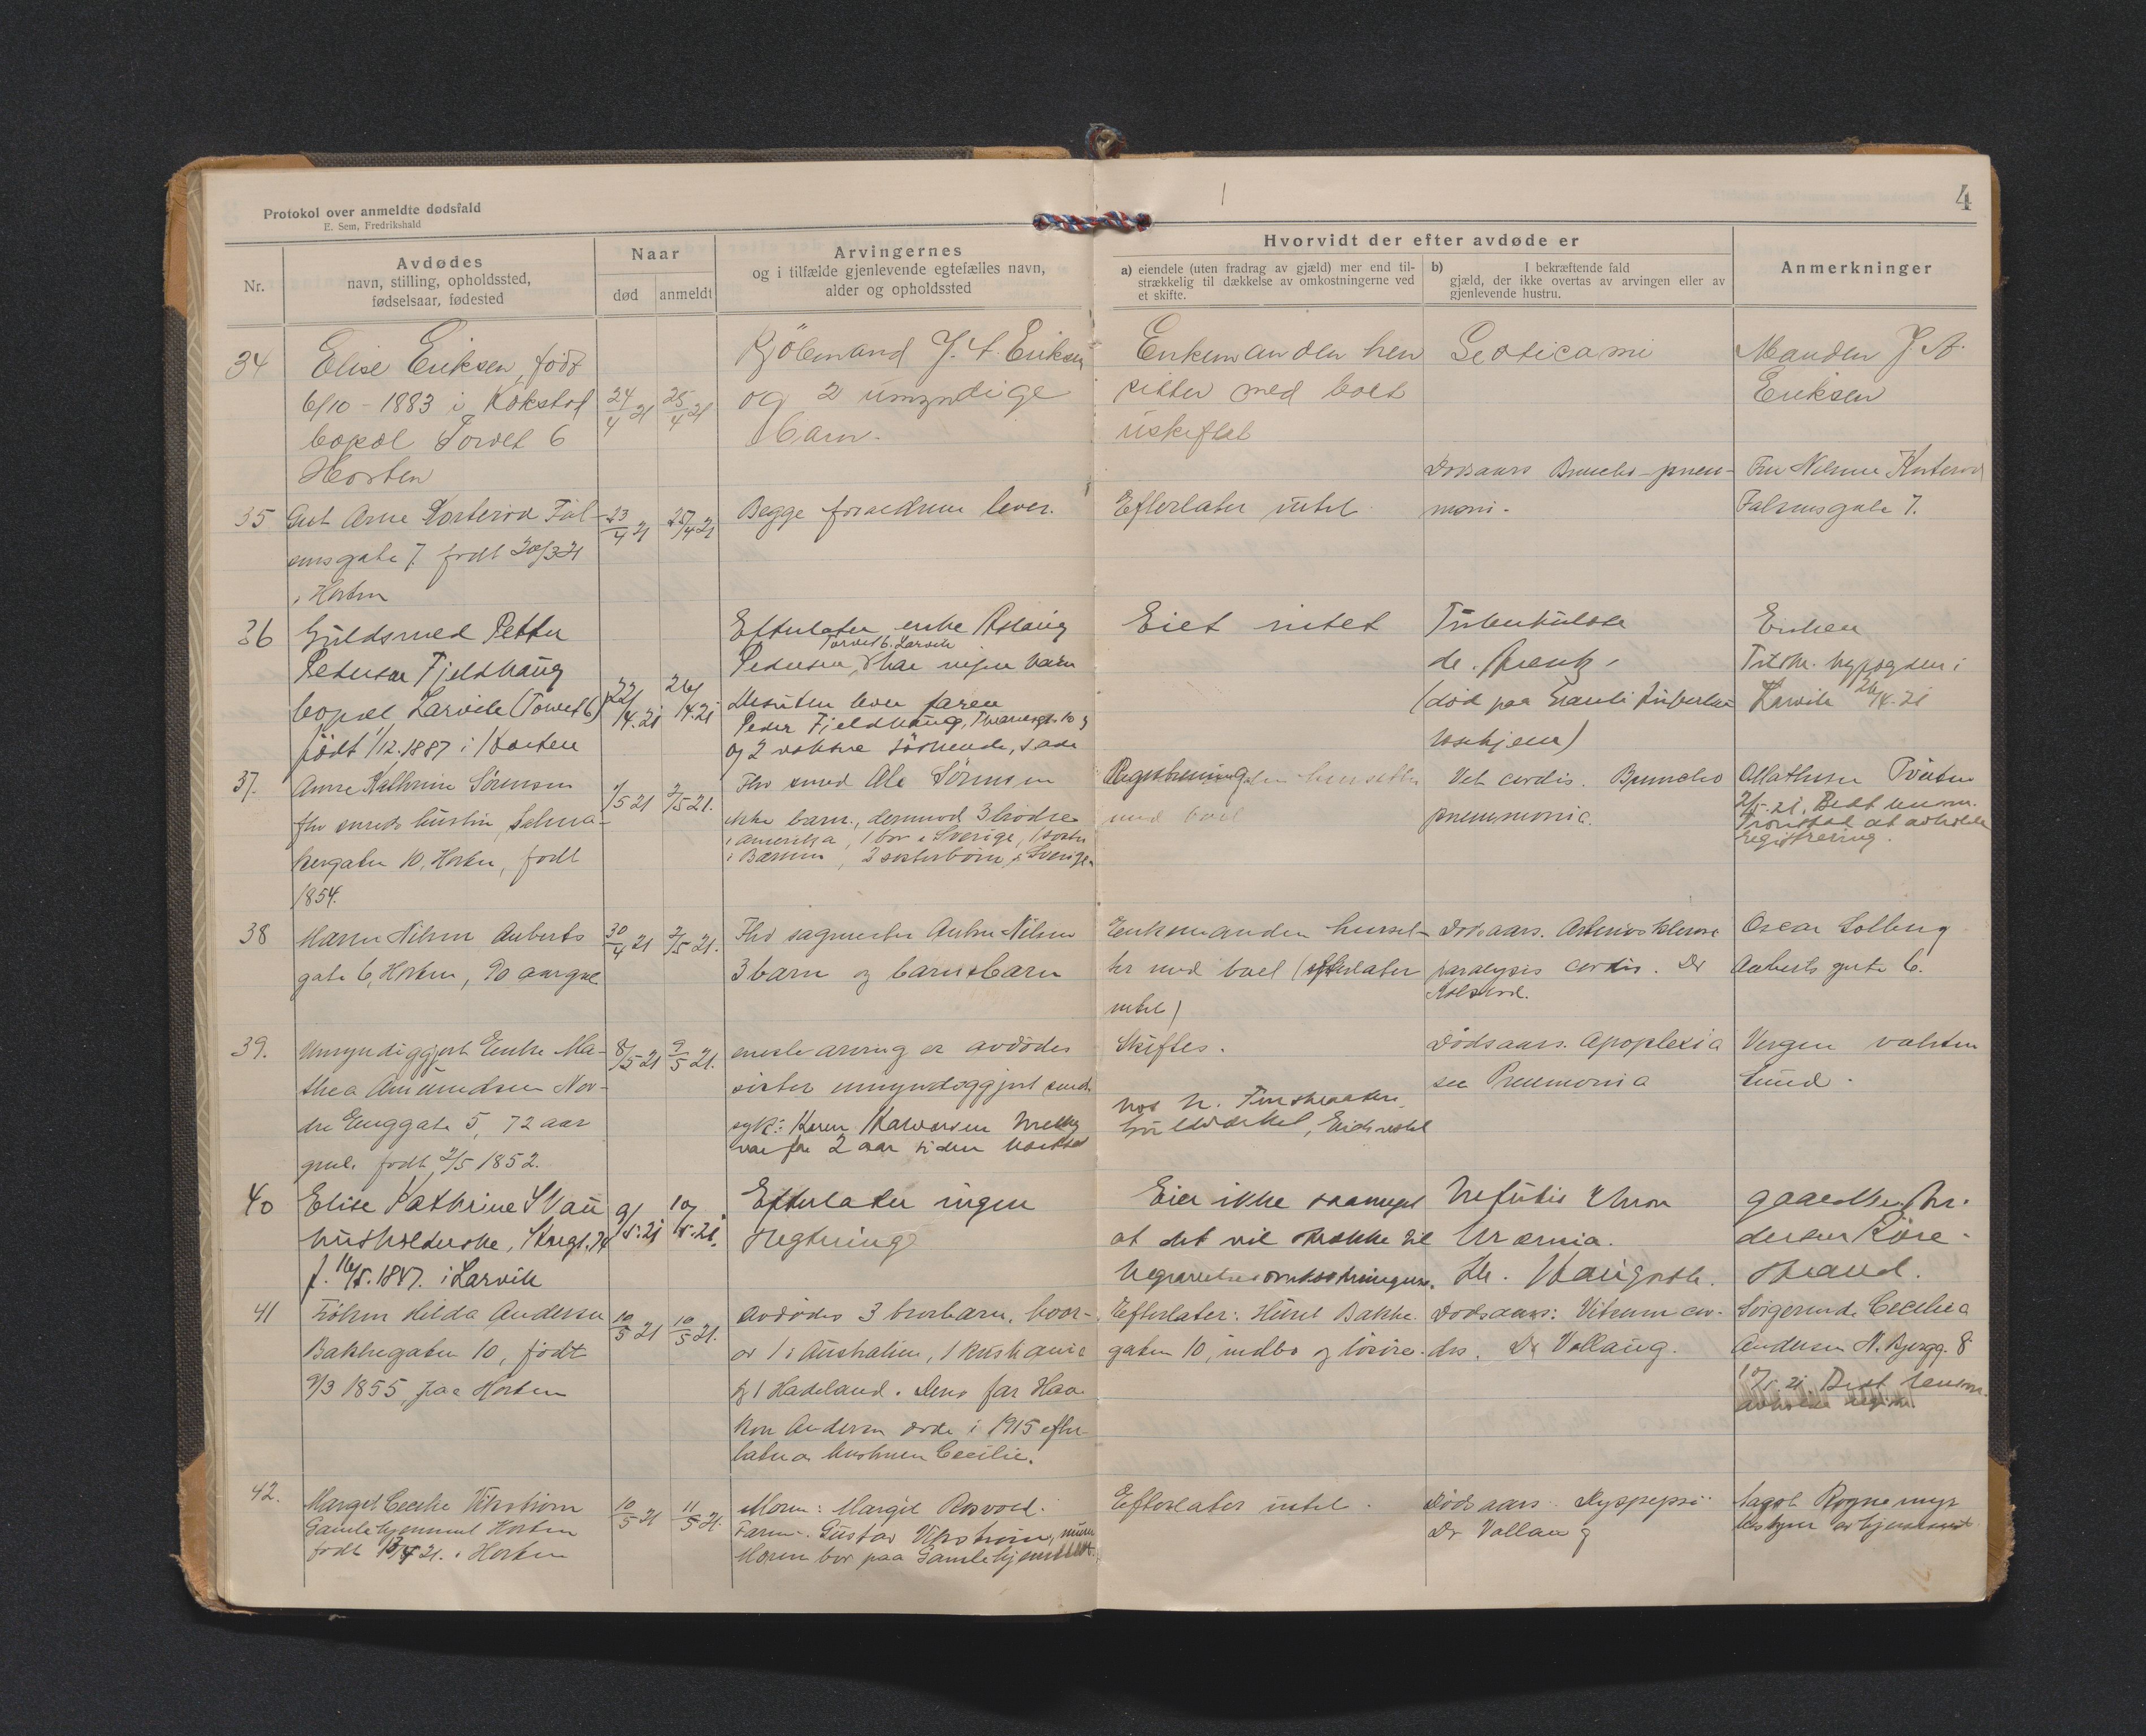 4
Protokol over anmeldte dødsfald
E. Sem, Fredrikshald
Nr.
Avdødes
navn, stilling, opholdssted,
fødselsaar, fødested
Naar
død
anmeldt
Arvingernes
og i tilfælde gjenlevende egtefælles navn,
alder og opholdssted
Hvorvidt der efter avdøde er
a) eiendele (uten fradrag av gjæld) mer end til-
strækkelig til dækkelse av omkostningerne ved
et skifte.
b) I bekræftende fald
gjæld, der ikke overtas av arvingen eller av
gjenlevende hustru.
Anmerkninger
34
Elise Eriksen, født
6/10 - 1883 i Kokstad
bopæl Torvet 6
Horten
24/4 21
25/4 21
Kjöbmand J. A. Eriksen
og 2 umyndige
barn.
Enkemanden hen
sitter med boet
uskiftet
Septicami
Manden J A.
Eriksen
35
Gut Arne Korterød Fal-
sensgate 7. født 20/3 21
i Horten
23/4 21
25/4 21
Begge forældrene lever.
Efterlater intet
Dødsaars Broncho-pneu-
moni.
Fru Nilsine Korterød
Falsensgate 7.
36
Guldsmed Petter
Pedersen Fjeldhaug
bopæl Larvik (Torvet 6)
født 1/12.1887 i Horten
22/4.21
26/4.21
Efterlater enke Aslaug
Torvet 6. Larvik
Pedersen, har ingen barn
Desuten lever faren
Peder Fjeldhaug,
og 2 voksne söskende,
Eiet intet
Tuberkulose
dr.
(død paa Granli tuberku-
losehjem)
Enken
Tilskr. byfogden i
Larvik 26/4.21
37.
Anne Kathrine Sörensen
fhv smeds hustru,
kergaten 10, Horten, født
1854.
1/5 21
2/5 21.
Fhv smed Ole Sörensen
ikke barn, derimod 3 brödre
i Amerika, 1 bor i Sverige, 1 söster
i Bærum, 2 sösterbörn i Sverige
Registrering
med boet
Vit. cordis. Broncho
pneumonia.
Mathisen Tveten
2/5.21. Bedt lensm.
Tronstad at avholde
registrering.
38
Maren Nilsen Auberts
gate 6, Horten, 70 aar gml
30/4 21
2/5 21.
Fhv sagmester Anton Nilsen
3 barn og barnebarn
Enkemanden hensit-
ter med boet (efterlater
intet)
Dødsaars. Arteriosklerose
paralysis cordis. Dr
Oscar Solberg
Auberts gate 6.
39.
Umyndiggjort Enke Ma-
thea Amundsen Nor-
dre Enggate 5, 72 aar
gml. født 2/5 1852.
8/5 21
9/5 21.
eneste arving er avdödes
söster umyndiggjort sinds
syk: Karen Halvorsen
var for 2 aar siden bosat
Skiftes.
hos
Dödsaars. Apoplexia
see Pneumonia
Vergen
Lund.
40
Elise Kathrine Skau
husholderske,
f. 16/5.1847. i Larvik
9/5.21
10/5.21.
Efterlater ingen
slegtninge
Eier ikke saameget
at det vil strække til
begravelsesomkostningene.
Nefritis Chron
Uræmia.
Dr.
41
Fröken Hilda Andersen
Bakkegaten 10, født
9/3 1855, paa Horten
10/5 21
10/5 21.
Avdødes 3 brorbarn, hvor-
av 1 i Australien, 1 Kristiania
og 1 Hadeland. Deres far Haa-
kon Andersen døde i 1915 efter-
latende hustruen Cecilie.
Efterlater: Huset Bakke-
gaten 10, indbo og lösöre.
Dødsaars: Vitium cor-
dis. Dr Vollaug.
Svigerinde Cecilie
Andersen N. Bjergg. 8
Bedt lensm.
42.
Margit Cecilie Vikström
Gamlehjemmet Horten
født 21. i Horten
10/5 21
11/5 21.
Moren: Margit Rosvold.
Faren: Gustav Vikström,
Moren bor paa Gamlehjemmet.
Efterlater intet.
Dödsaars. Dyspepsi
Dr Vollaug
bestyrer av hjemmet